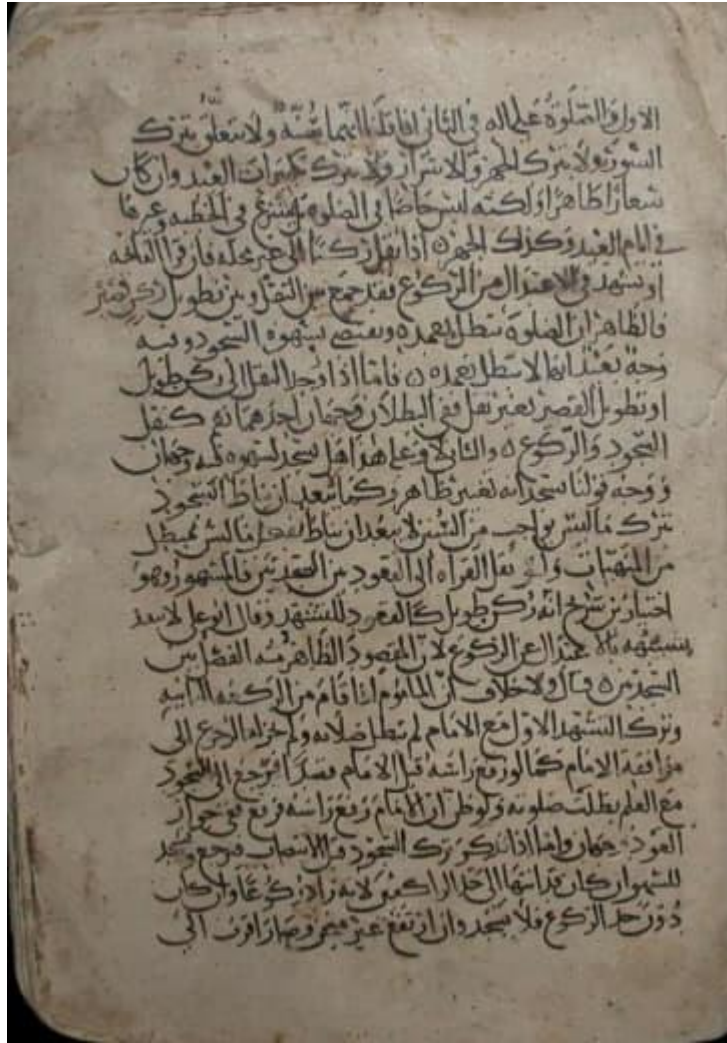 الاول والصلوة على اله في الثاني اذا قلنا انهما سنة ولا يتعلق بترك
السورة ولا بترك الجهر والاسرار ولا بترك تكبيرات العيد وان كان
شعارا ظاهرا ولكنه ليس خاصا في الصلوة بل يشرع في الخطبة وغيرها
في ايام العيد وكذلك الجهر ه اذا نقل ركنا الى غير محله فان قرا الفاتحة
او تشهد في الاعتدال من الركوع فقد جمع بين النقل وبين تطويل ركن قصير
فالظاهر ان الصلوة تبطل بعمده ويقتضي سهوه السجود وفيه
وجه بعيد انها لا تبطل بعمده ه فاما اذا وجد النقل الى ركن طويل
او تطويل القصير بغير نقل ففي البطلان وجهان احدهما نعم كنقل
السجود والركوع ه والثاني لا وعلى هذا هل يسجد لسهوه فيه وجهان
ووجه قولنا يسجد انه تغيير ظاهر وكما لم يبعد ان يناط السجود
بترك ما ليس بواجب من السنن لا يبعد ان يناط بفعل ما ليس بمبطل
من المنهيات ولو نقل القراه الى القعود بين السجدتين فالمشهور وهو
اختيار بن سريج انه ركن طويل كالقعود للتشهد وقال ابو علي لا يبعد
تشبيهه بالاعتدال عن الركوع لان المقصود الظاهر منه الفصل بين
السجدتين ه قال ولا خلاف ان الماموم اذا قام من الركعه الثانيه
وترك التشهد الاول مع الامام لم تبطل صلاته ولم اجزاه الرجوع الى
موافقه الامام كما لو رفع راسه قبل الامام قصدا فرجع الى السجود
مع العلم بطلت صلوته ولو ظن ان الامام رفع راسه فرفع ففي جواز
العود وجهان واما اذا تذكر ترك السجود قبل الانتصاب فيرجع ويسجد
للسهو ان كان قد انتهى الى حد الراكعين لانه زاد ركوعا وان كان
دون حد الركوع فلا يسجد وان ارتفع غير منحن وصار اقرب الى